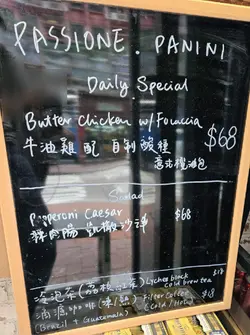 PASSIONE . PANINI
Daily Special
Butter Chicken w/ Focaccia $68
牛油雞 配 自制 酸種
意式欖油包
Salad
Pepperoni Caesar $68
豬肉腸 凱撒沙律
冷泡茶 (荔枝紅茶) Lychee black cold brew tea $18
滴濾咖啡 (凍/熱) Filter Coffee (Cold / Hot) $18
(Brazil + Guatemala)